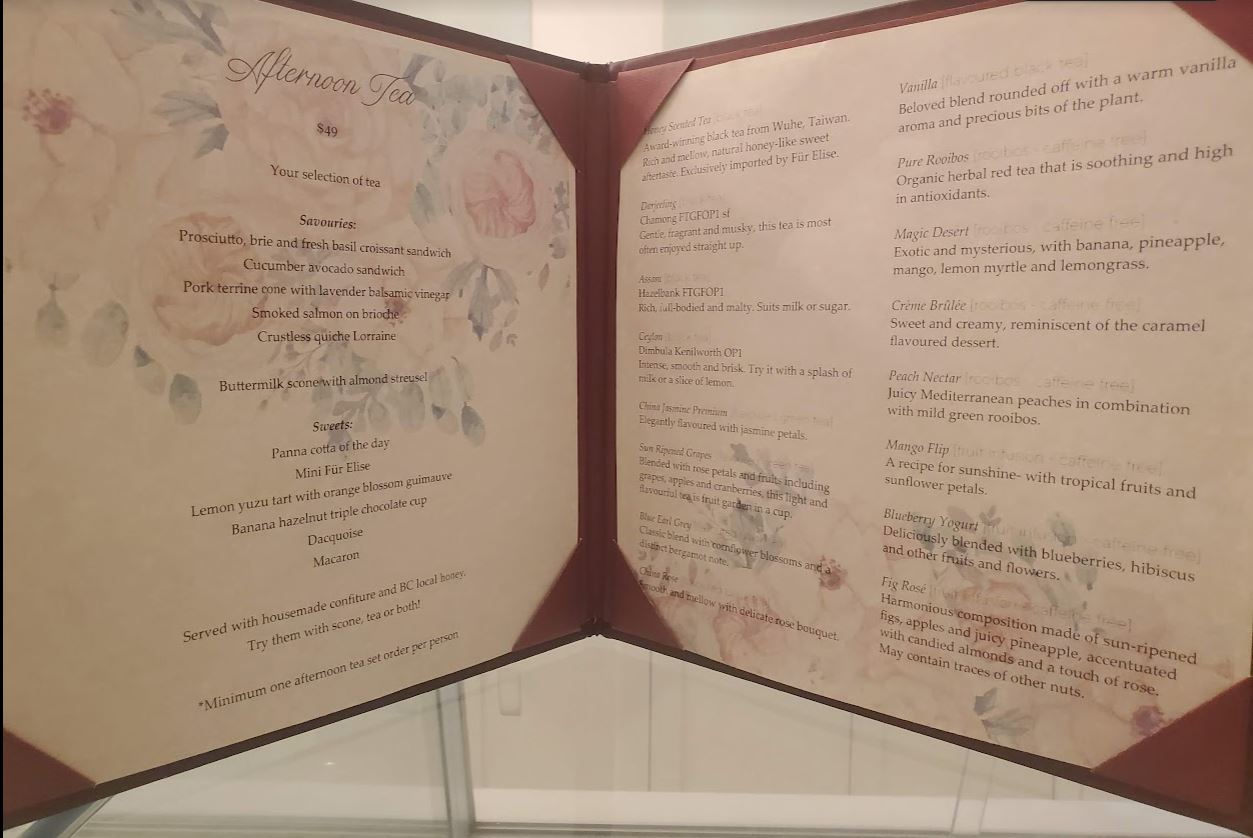 Afternoon Tea
$49
Your selection of tea
Savouries:
Prosciutto, brie and fresh basil croissant sandwich
Cucumber avocado sandwich
Pork terrine cone with lavender balsamic vinegar
Smoked salmon on brioche
Crustless quiche Lorraine
Buttermilk scone with almond streusel
Sweets:
Panna cotta of the day
Mini Für Elise
Lemon yuzu tart with orange blossom guimauve
Banana hazelnut triple chocolate cup
Dacquoise
Macaron
Served with housemade confiture and BC local honey.
Try them with scone, tea or both!
*Minimum one afternoon tea set order per person
Honey Scented Tea [black tea]
Award-winning black tea from Wuhe, Taiwan.
Rich and mellow, natural honey-like sweet
aftertaste. Exclusively imported by Für Elise.
Darjeeling [black tea]
Chamong FTGFOP1 sf
Gentle, fragrant and musky, this tea is most
often enjoyed straight up.
Assam [black tea]
Hazelbank FTGFOP1
Rich, full-bodied and malty. Suits milk or sugar.
Ceylon [black tea]
Dimbula Kenilworth OP1
Intense, smooth and brisk. Try it with a splash of
milk or a slice of lemon.
China Jasmine Premium green tea]
Elegantly flavoured with jasmine petals.
Sun Ripened Grapes green tea]
Blended with rose petals and fruits including
grapes, apples and cranberries, this light and
flavourful tea is fruit garden in a cup.
Blue Earl Grey
Classic blend with cornflower blossoms and a
distinct bergamot note.
China Rose
Smooth and mellow with delicate rose bouquet.
Vanilla [flavoured black tea]
Beloved blend rounded off with a warm vanilla
aroma and precious bits of the plant.
Pure Rooibos [rooibos - caffeine free]
Organic herbal red tea that is soothing and high
in antioxidants.
Magic Desert [rooibos - caffeine free]
Exotic and mysterious, with banana, pineapple,
mango, lemon myrtle and lemongrass.
Crème Brûlée [rooibos - caffeine free]
Sweet and creamy, reminiscent of the caramel
flavoured dessert.
Peach Nectar [rooibos - caffeine free]
Juicy Mediterranean peaches in combination
with mild green rooibos.
Mango Flip [fruit infusion - caffeine free]
A recipe for sunshine- with tropical fruits and
sunflower petals.
Blueberry Yogurt [fruit infusion - caffeine free]
Deliciously blended with blueberries, hibiscus
and other fruits and flowers.
Fig Rosé [fruit infusion - caffeine free]
Harmonious composition made of sun-ripened
figs, apples and juicy pineapple, accentuated
with candied almonds and a touch of rose.
May contain traces of other nuts.